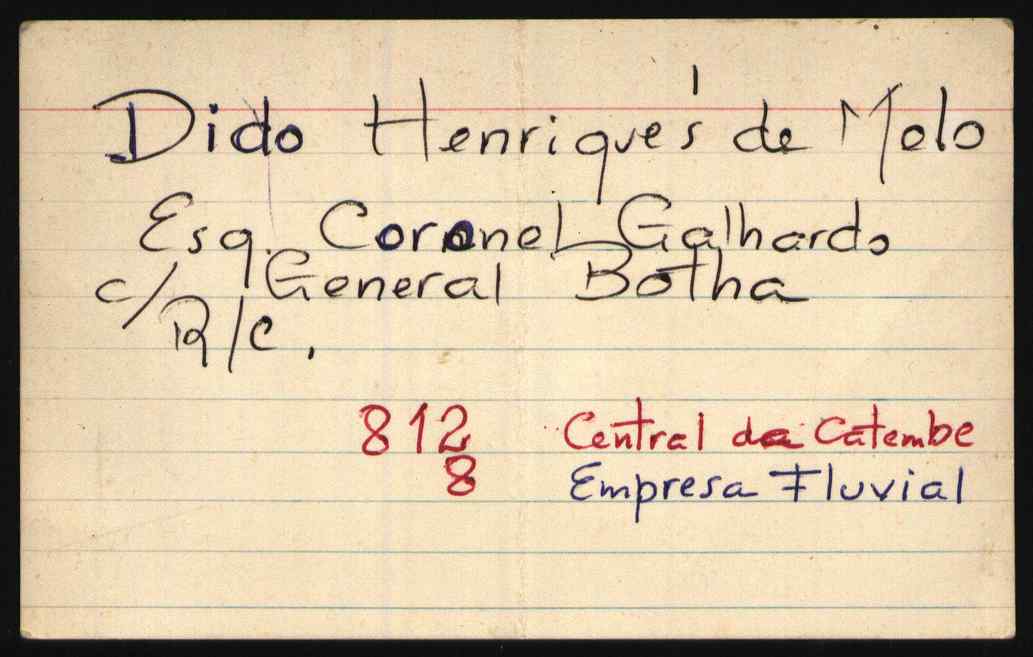 Dido Henriques de Melo
Esq. Coronel Galhardo
c/ General Botha
R/C.
812 Central da Catembe
8 Empresa Fluvial